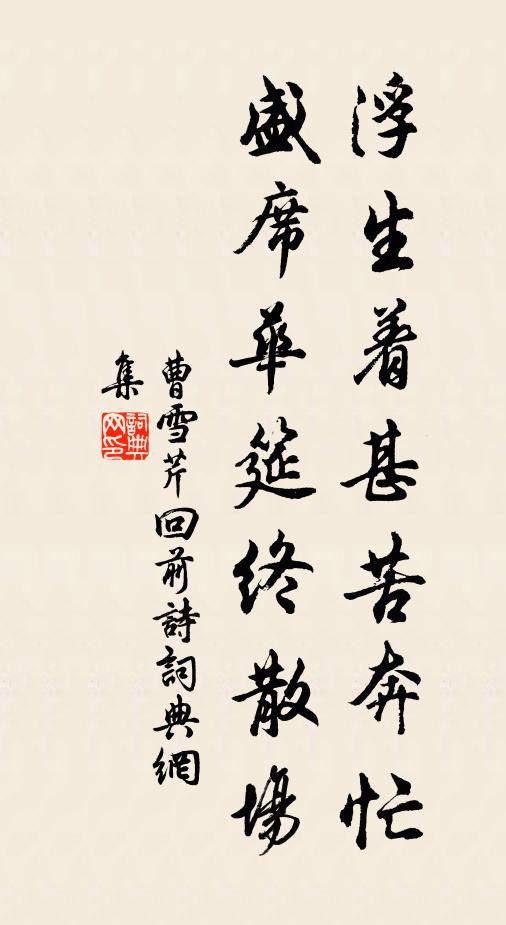 浮生着甚苦奔忙
盛席華筵終散場
曹雪芹回前詩詞典網
集
詞典網印